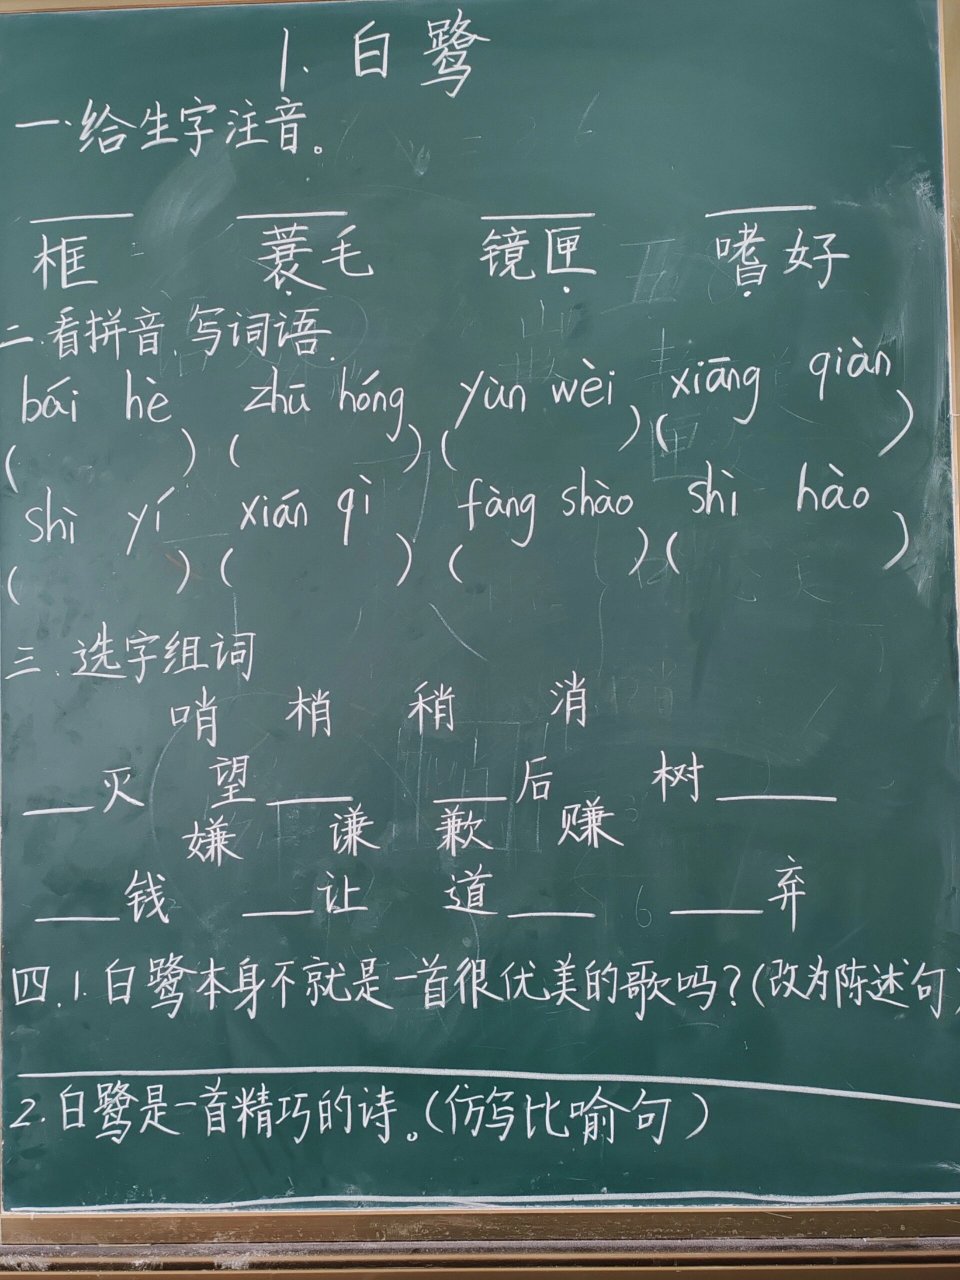 1. 白鹭
一. 给生字注音。
框 蓑毛 镜匣 嗜好
二. 看拼音, 写词语.
bái hè zhū hóng yùn wèi xiāng qiàn
( ) ( ) ( ) ( )
shì yí xián qì fàng shào shì hào
( ) ( ) ( ) ( )
三. 选字组词
哨 梢 稍 消
___灭 望___ ___后 树___
嫌 谦 歉 赚
___钱 ___让 道___ ___弃
四. 1. 白鹭本身不就是一首很优美的歌吗?(改为陈述句)
2. 白鹭是一首精巧的诗。(仿写比喻句)